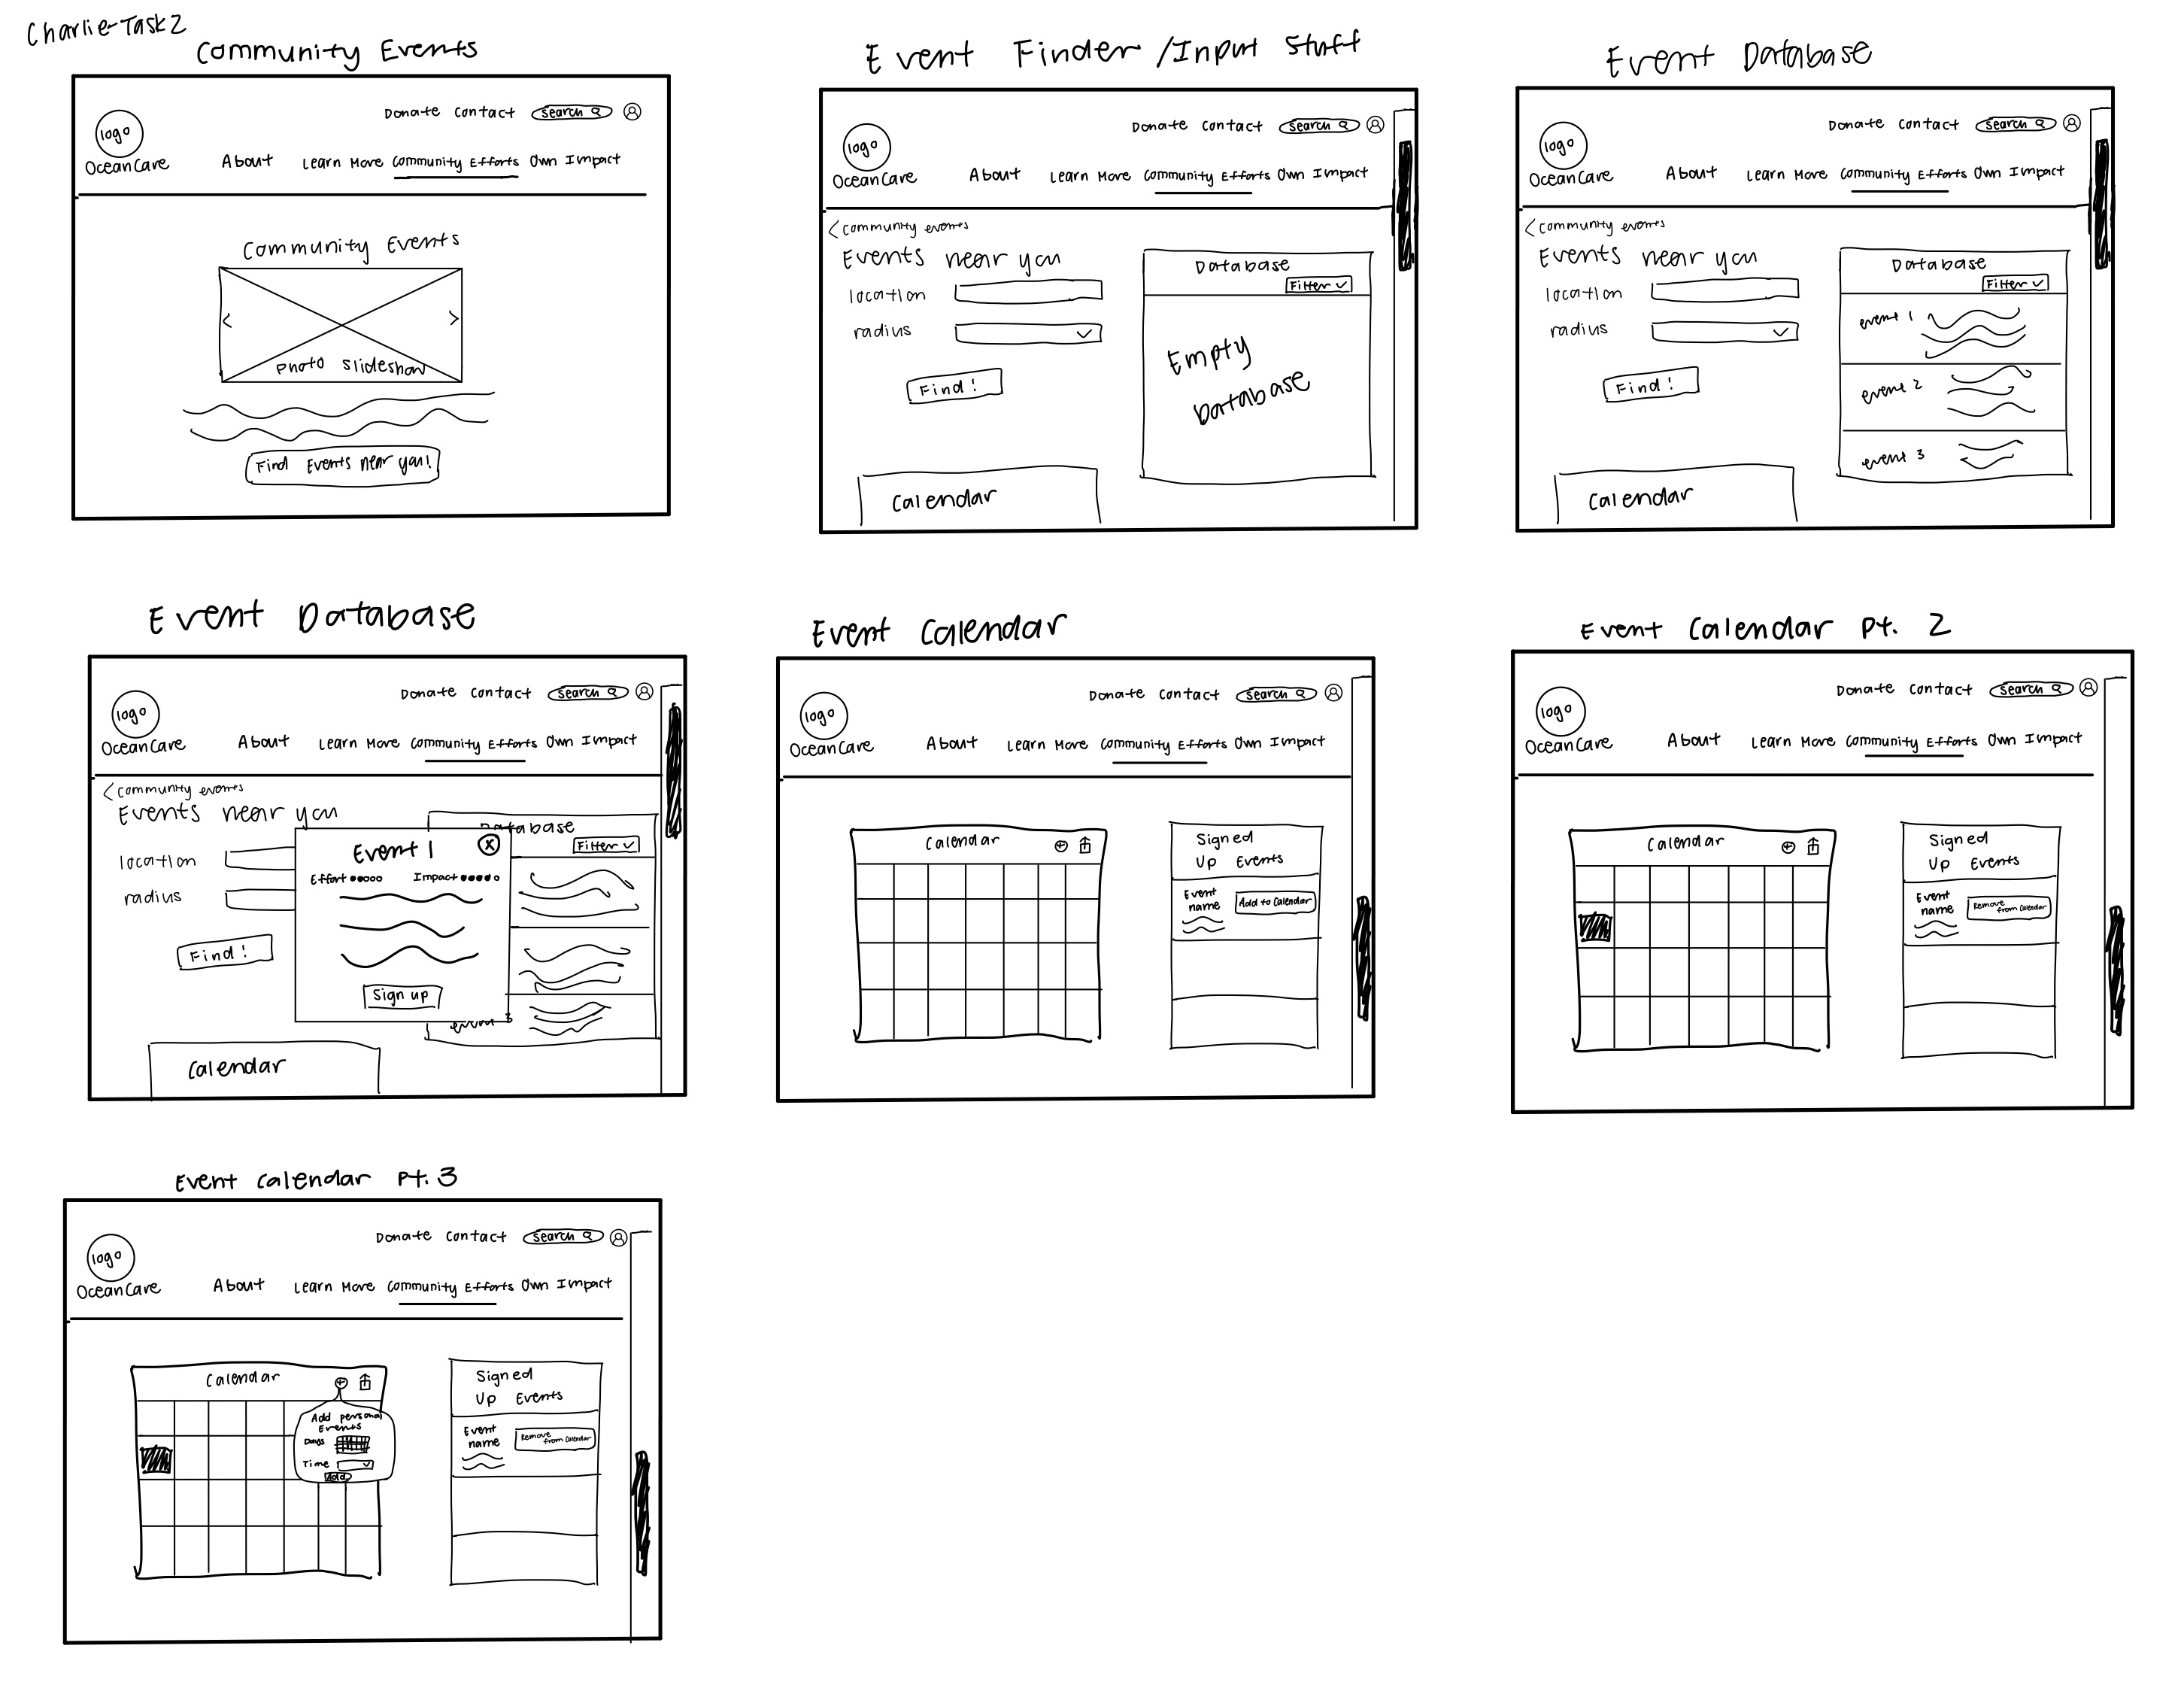 Charlie-Task2
Community Events
Donate Contact Search
logo
OceanCare
About Learn More Community Efforts Own Impact
Community Events
Photo Slideshow
Find Events near you!
Event Finder/Input Stuff
Donate Contact Search
logo
OceanCare
About Learn More Community Efforts Own Impact
< Community events
Events near you
location
radius
Find!
Database
Filter
Empty
Database
Calendar
Event Database
Donate Contact Search
logo
OceanCare
About Learn More Community Efforts Own Impact
< Community events
Events near you
location
radius
Find!
Database
Filter
event 1
event 2
event 3
Calendar
Event Database
Donate Contact Search
logo
OceanCare
About Learn More Community Efforts Own Impact
< Community events
Events near you
location
radius
Find!
Database
Filter
Event 1
X
Effort Impact
Sign up
event 3
Calendar
Event Calendar
Donate Contact Search
logo
OceanCare
About Learn More Community Efforts Own Impact
Calendar
Signed
Up Events
Event
name
Add to Calendar
Event Calendar Pt. 2
Donate Contact Search
logo
OceanCare
About Learn More Community Efforts Own Impact
Calendar
Signed
Up Events
Event
name
Remove
from Calendar
Event Calendar Pt.3
Donate Contact Search
logo
OceanCare
About Learn More Community Efforts Own Impact
Calendar
Add personal
Events
Days
Time
Add
Signed
Up Events
Event
name
Remove
from Calendar